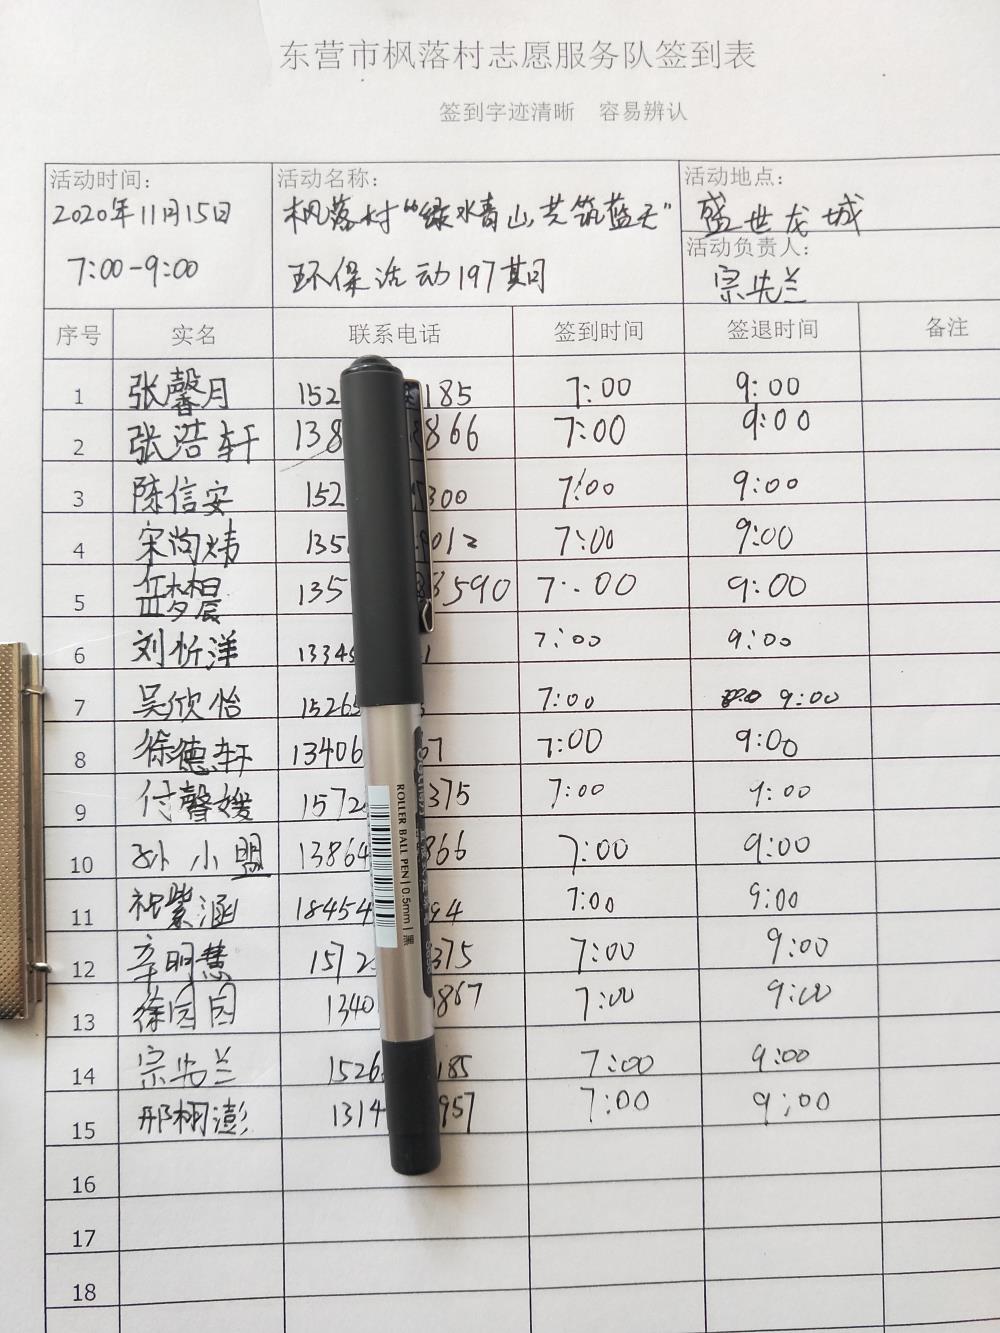 东营市枫落村志愿服务队签到表
签到字迹清晰 容易辨认
活动时间：
2020年11月15日
7:00-9:00
活动名称：
枫落村“绿水青山共筑蓝天”
环保活动197期
活动地点：
盛世龙城
活动负责人：
宗先兰
序号 实名 联系电话 签到时间 签退时间 备注
1 张馨月 152 185 7:00 9:00
2 张浩轩 138 866 7:00 9:00
3 陈信安 152 300 7:00 9:00
4 宋尚炜 135 012 7:00 9:00
5 135 3590 7:00 9:00
6 刘忻洋 13345 1 7:00 9:00
7 吴欣怡 15265 7:00 9:00
8 徐德轩 13406 67 7:00 9:00
9 付馨嫒 1572 375 7:00 9:00
10 孙小盟 13864 866 7:00 9:00
11 祁紫涵 18454 94 7:00 9:00
12 辛明慧 1572 375 7:00 9:00
13 徐园园 1340 867 7:00 9:00
14 宗先兰 1526 185 7:00 9:00
15 邢栩澎 1314 957 7:00 9:00
16
17
18
ROLLER BALL PEN | 0.5mm | 黑